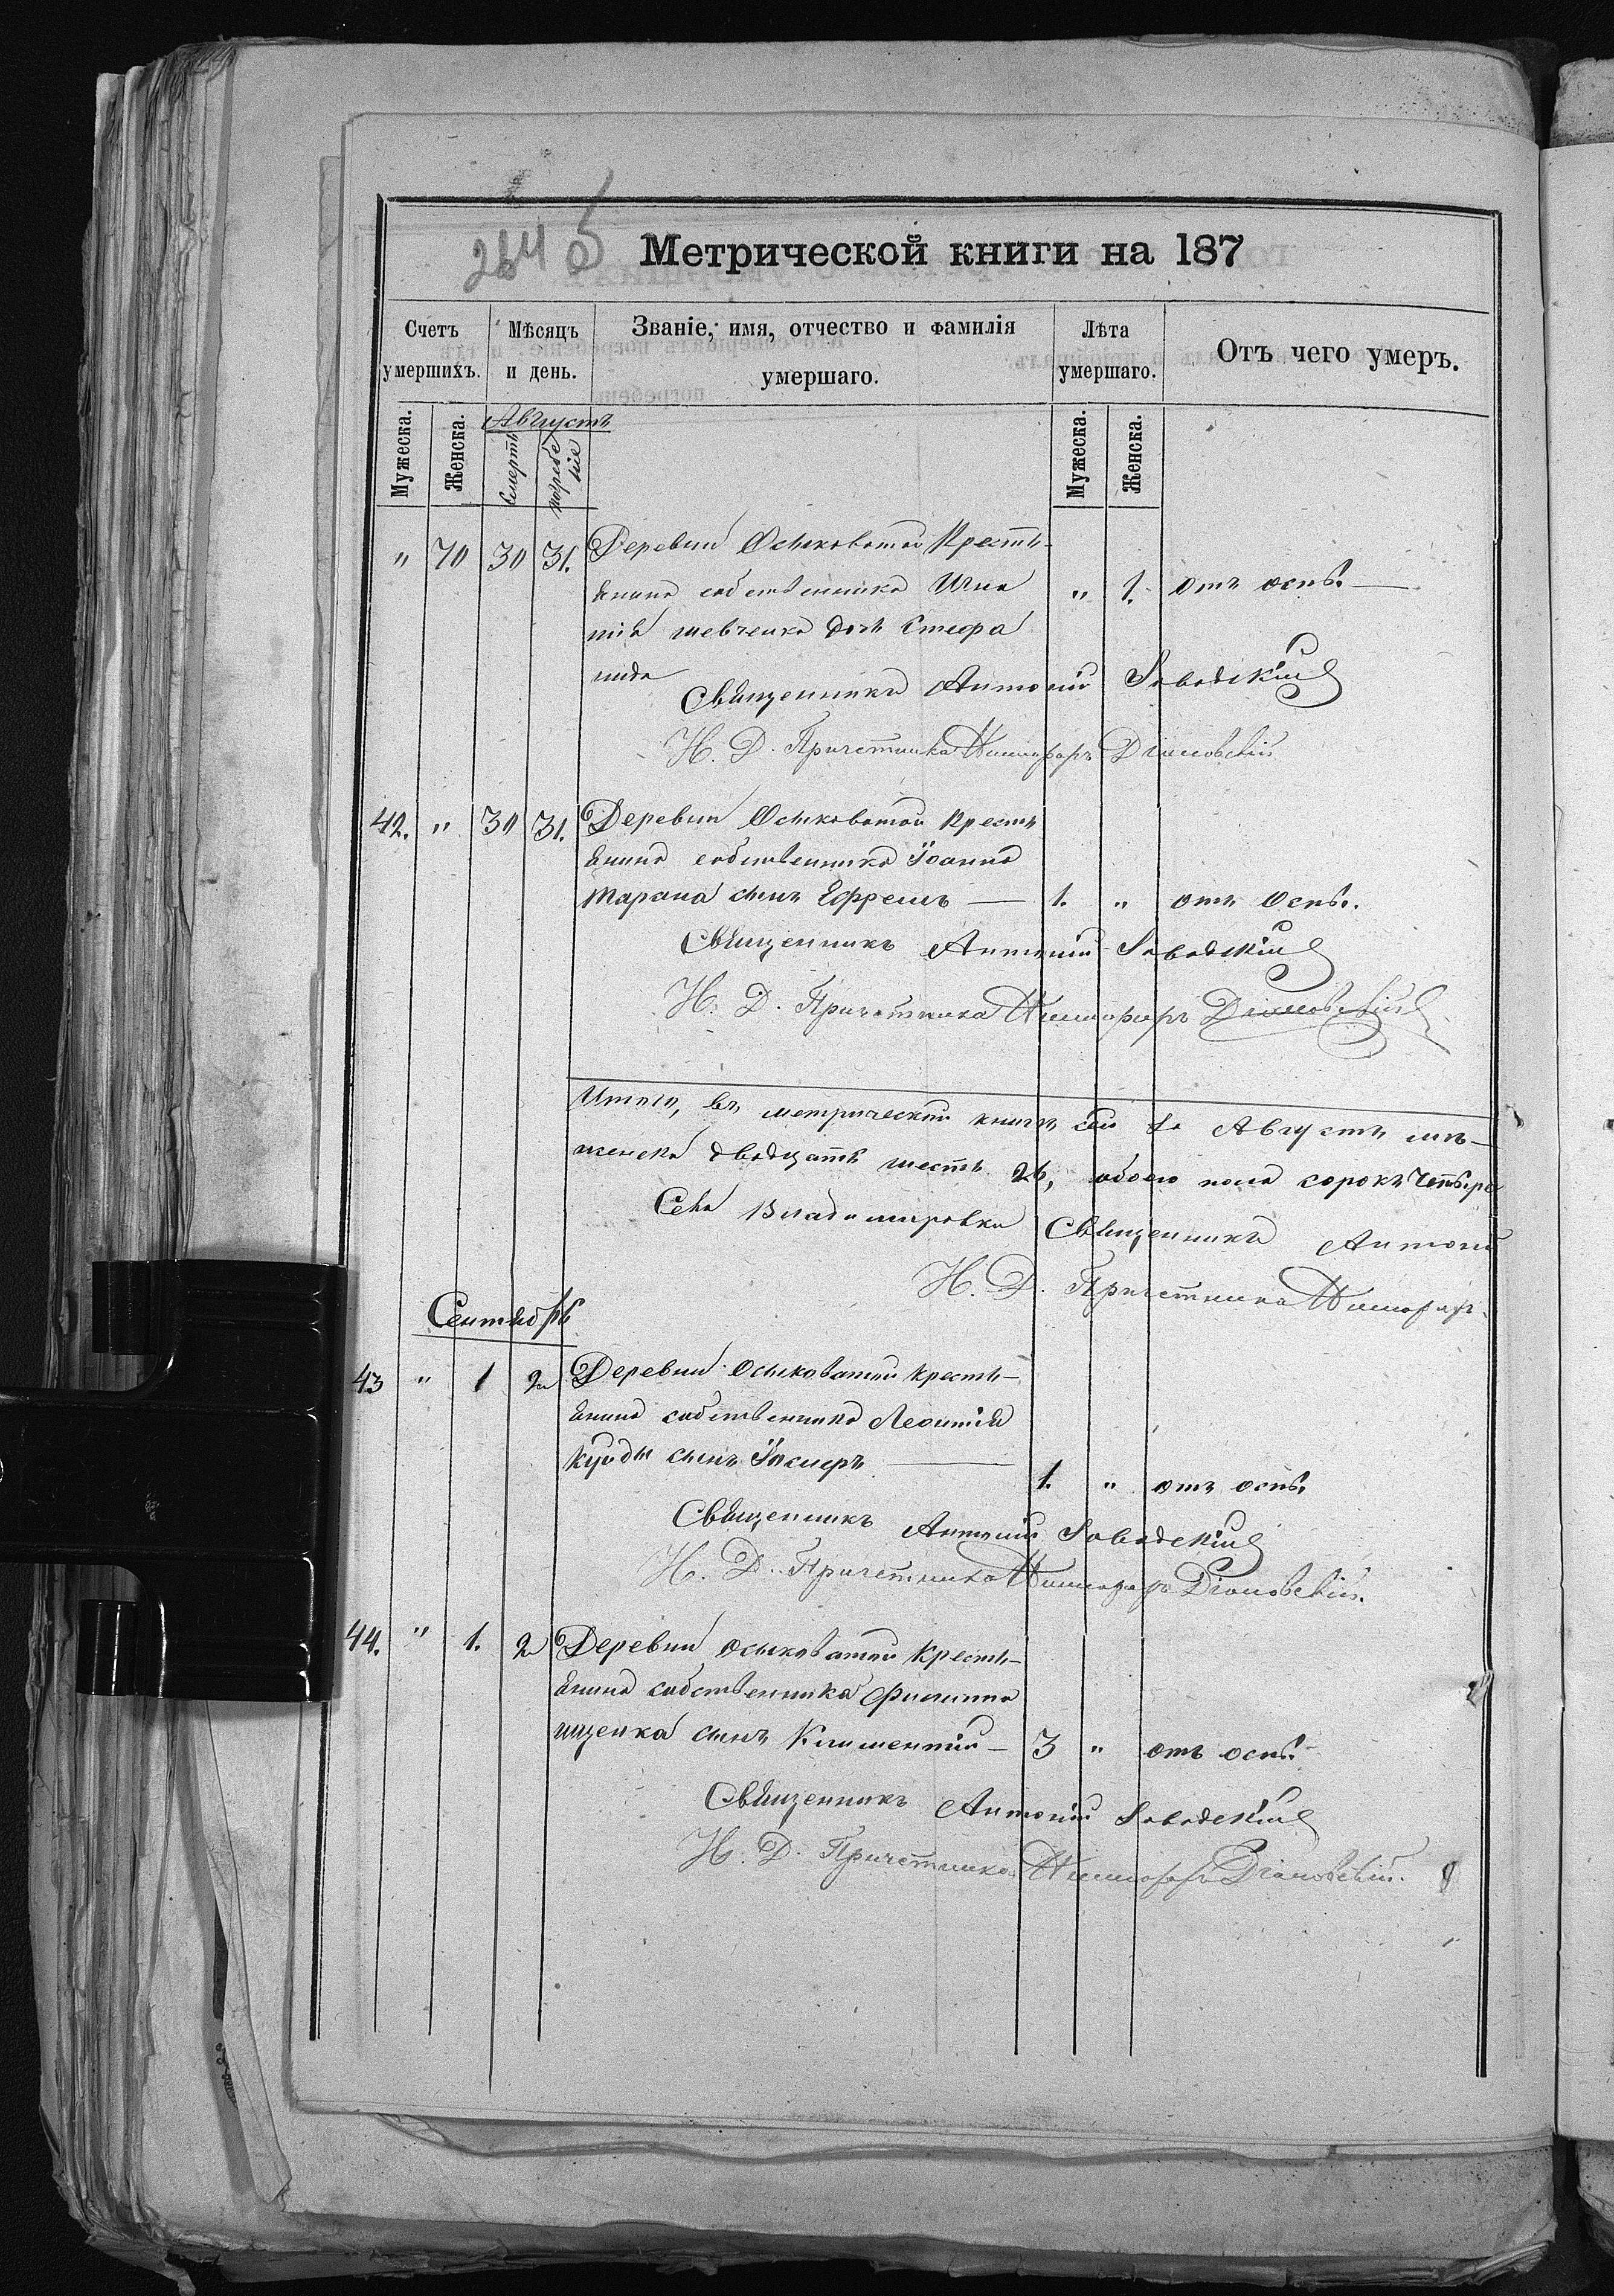 264 б
Метрической книги на 187
Счетъ умершихъ.
Мѣсяцъ и день.
Званіе, имя, отчество и фамилія умершаго.
Лѣта умершаго.
Отъ чего умеръ.
Мужеска.
Женска.
Августъ
Смерть
погребеніе
Мужеска.
Женска.
" 70 30 31. Деревни Осыковатой Кресть-
янина собственника Игна " 1. отъ оспы.
тія Шевченка дочь Стефа
нида
Священникъ Антоній Заводскій
И. Д. Причетника
42. " 30 31. Деревни Осыковатой Кресть
янина собственника Іоанна
Тарана сынъ Ефремъ — 1. " отъ Оспы.
Священникъ Антоній Заводскій
И. Д. Причетника
Итого, въ метрической книгѣ сей за Августъ мѣ-
женска двадцать шесть 26, обоего пола сорокъ четыре
Села Владимировки Священникъ Антоній
И. Д. Причетника
Сентябрь
43 " 1 2 Деревни Осыковатой Кресть-
янина собственника Леонтія
сынъ
1. " отъ оспы.
Священникъ Антоній Заводскій
И. Д. Причетника
44. " 1. 2 Деревни Осыковатой Кресть-
янина собственника Филиппа
Ищенка сынъ Климентій — 3 " отъ оспы.
Священникъ Антоній Заводскій
И. Д. Причетника